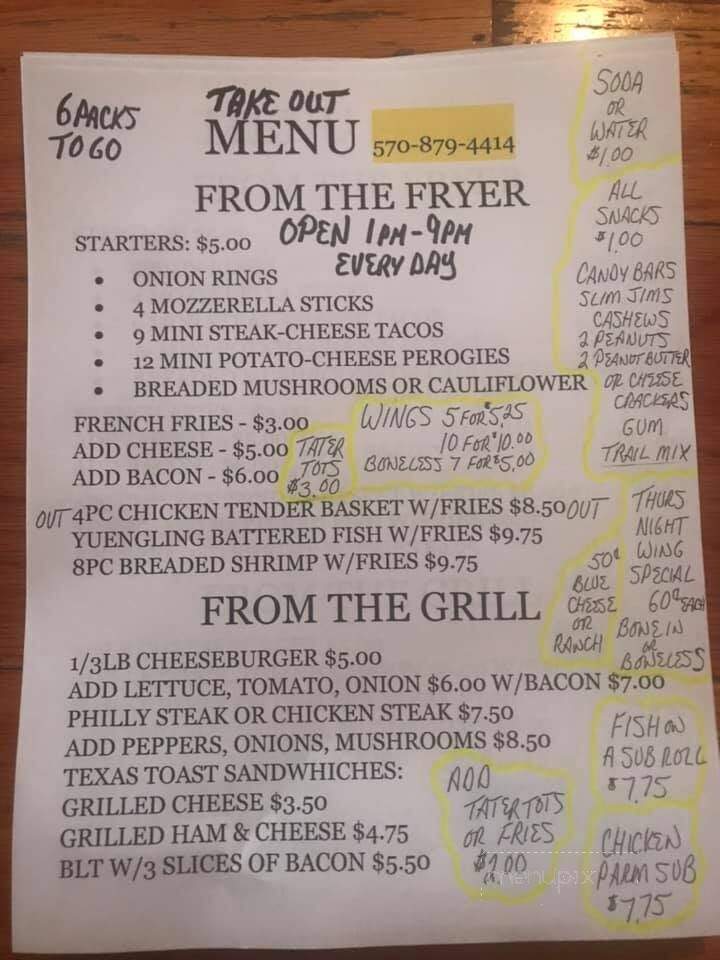 6 PACKS
TO GO
TAKE OUT
MENU 570-879-4414
FROM THE FRYER
OPEN 1PM-9PM
EVERY DAY
STARTERS: $5.00
• ONION RINGS
• 4 MOZZERELLA STICKS
• 9 MINI STEAK-CHEESE TACOS
• 12 MINI POTATO-CHEESE PEROGIES
• BREADED MUSHROOMS OR CAULIFLOWER
FRENCH FRIES - $3.00
ADD CHEESE - $5.00
ADD BACON - $6.00
TATER
TOTS
$3.00
WINGS 5 FOR $5.25
10 FOR $10.00
BONELESS 7 FOR $5.00
OUT 4PC CHICKEN TENDER BASKET W/FRIES $8.50 OUT
YUENGLING BATTERED FISH W/FRIES $9.75
8PC BREADED SHRIMP W/FRIES $9.75
FROM THE GRILL
1/3LB CHEESEBURGER $5.00
ADD LETTUCE, TOMATO, ONION $6.00 W/BACON $7.00
PHILLY STEAK OR CHICKEN STEAK $7.50
ADD PEPPERS, ONIONS, MUSHROOMS $8.50
TEXAS TOAST SANDWHICHES:
GRILLED CHEESE $3.50
GRILLED HAM & CHEESE $4.75
BLT W/3 SLICES OF BACON $5.50
ADD
TATER TOTS
OR FRIES
SODA
OR
WATER
$1.00
ALL
SNACKS
$1.00
CANDY BARS
SLIM JIMS
CASHEWS
2 PEANUTS
2 PEANUT BUTTER
OR CHEESE
CRACKERS
GUM
TRAIL MIX
THURS
NIGHT
WING
SPECIAL
60¢ EACH
BONE IN
OR
BONELESS
50¢
BLUE
CHEESE
OR
RANCH
FISH ON
A SUB ROLL
$7.75
CHICKEN
PARM SUB
$7.75
menupix